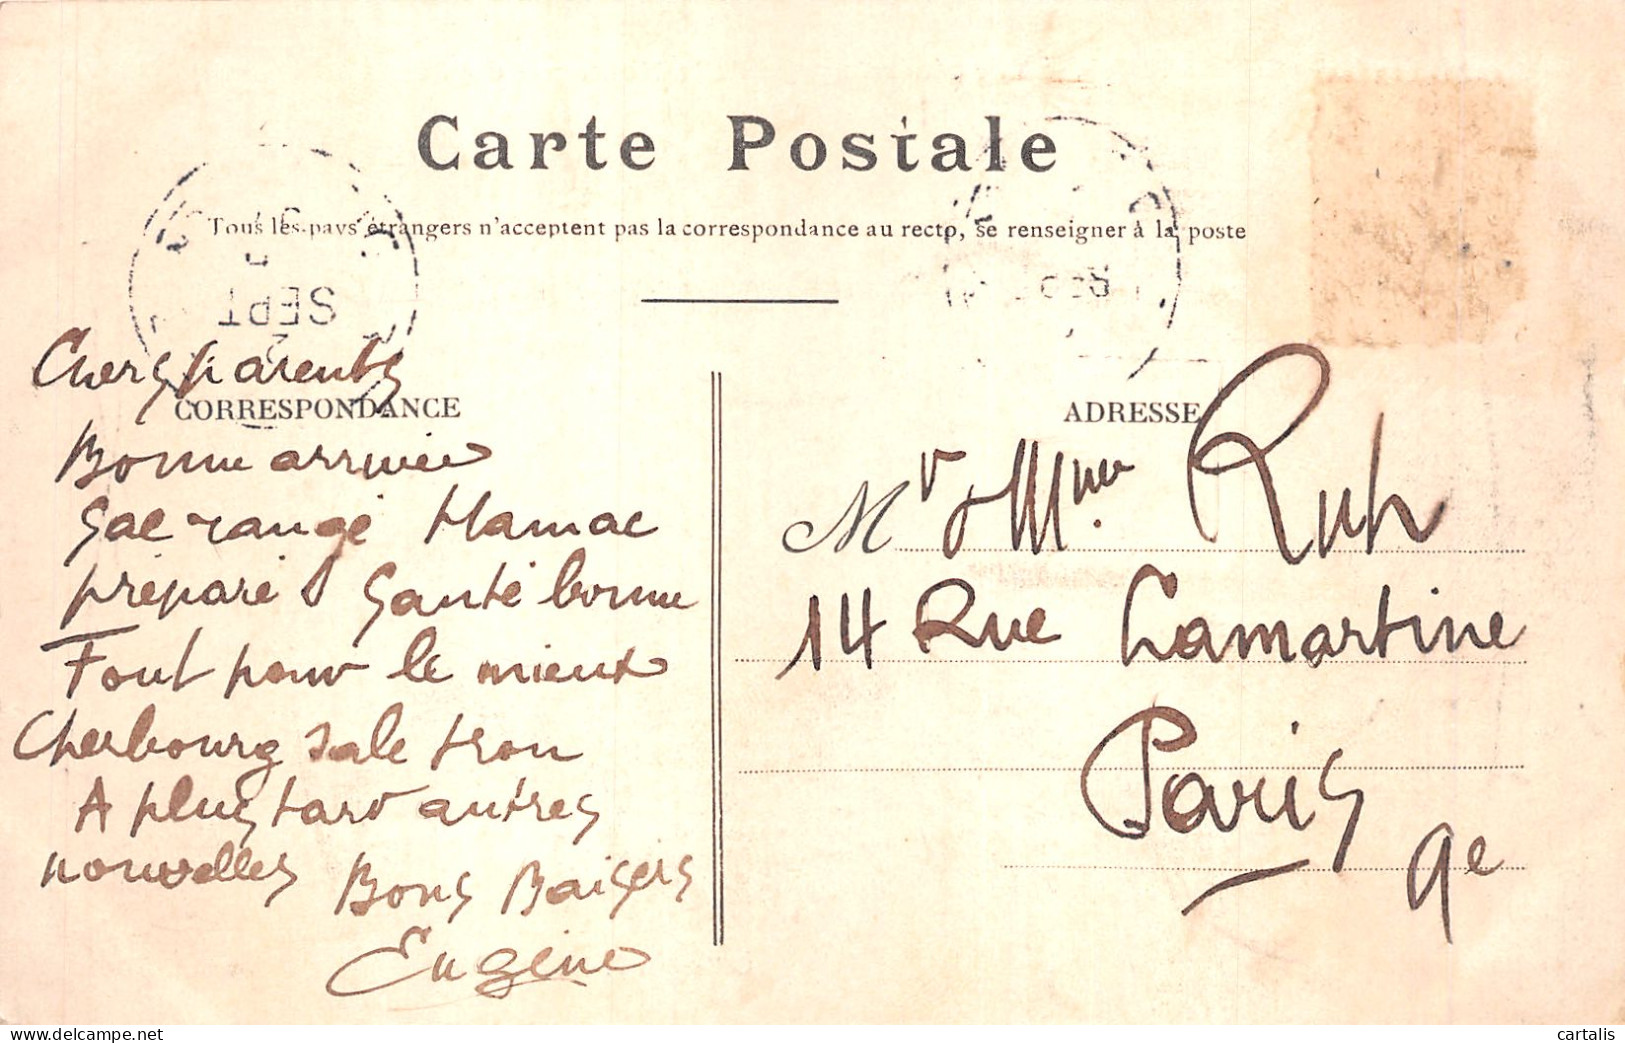 Carte Postale
Tous les pays étrangers n'acceptent pas la correspondance au recto, se renseigner à la poste
SEPT
Chers parents
CORRESPONDANCE
Bonne arrivée
Sac rangé Hamac
préparé Santé bonne
Tout pour le mieux
Cherbourg sale trou
A plus tard autres
nouvelles Bons Baisers
Eugène
ADRESSE
Mr & Mme Ruh
14 Rue Lamartine
Paris
9e
cartalis